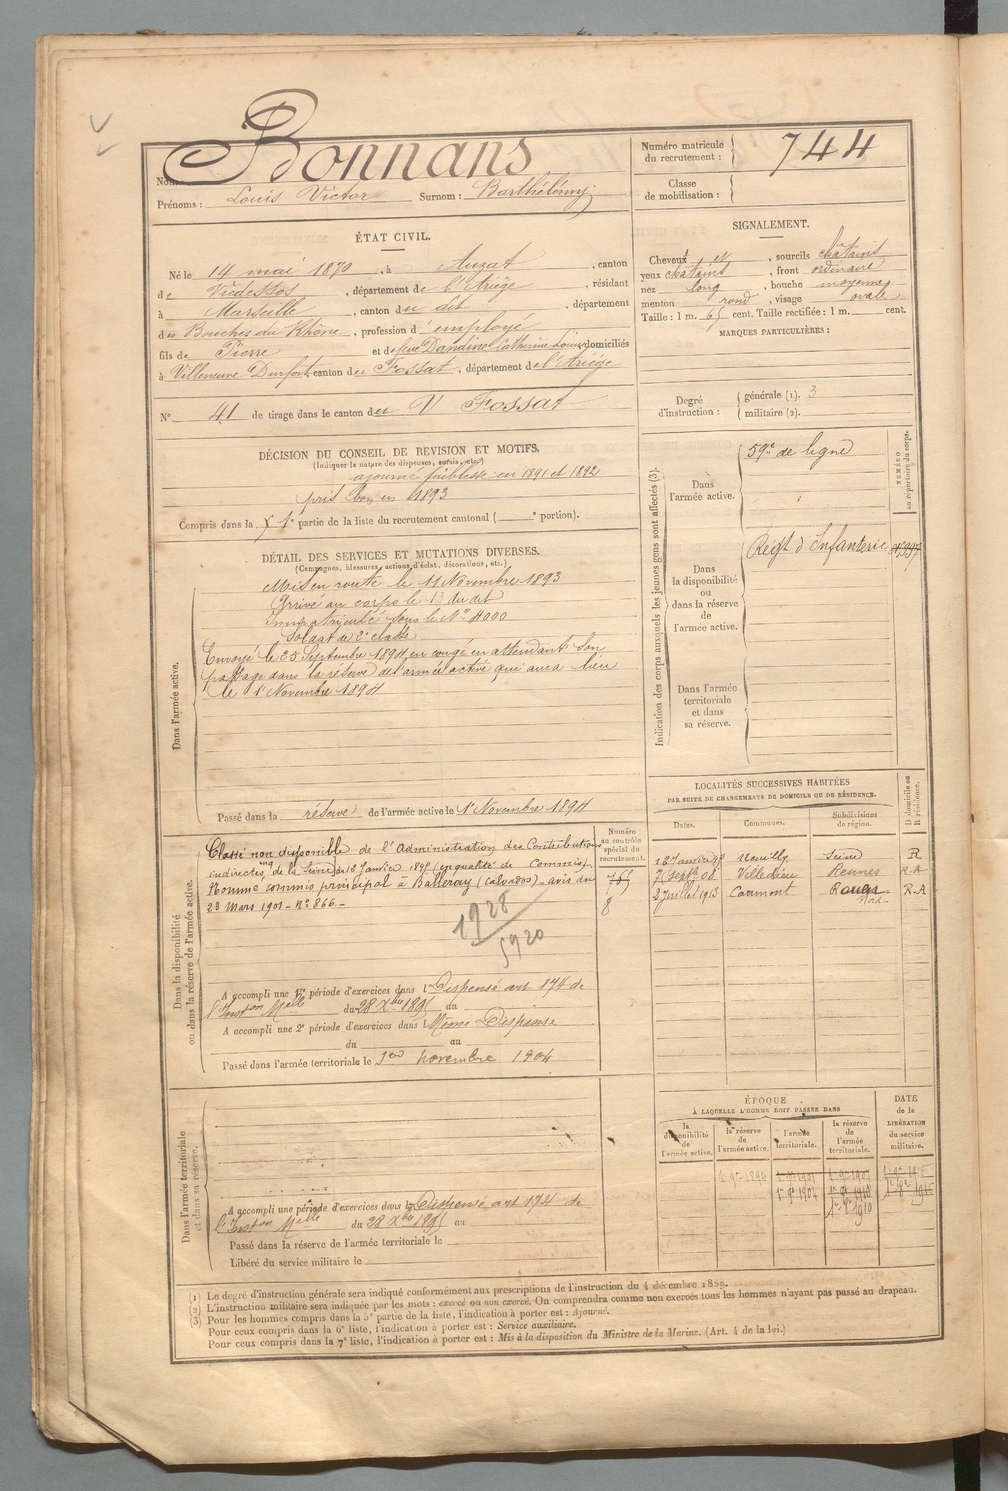 Bonnans
Nom :
Prénoms : Louis Victor Surnom : Barthélémy
Numéro matricule du recrutement : 744
Classe de mobilisation :
ÉTAT CIVIL.
Né le 14 mai 1870, à Auzat, canton
de Vicdessos, département de l'Ariège, résidant
à Marseille, canton du dit, département
des Bouches du Rhône, profession d'employé
fils de Pierre et de feue Dandine Catherine Louise domiciliés
à Villeneuve Durfort canton du Fossat, département de l'Ariège
N° 41 de tirage dans le canton du Fossat
SIGNALEMENT.
Cheveux et, sourcils châtains
yeux châtains, front ordinaire
nez long, bouche moyenne
menton rond, visage ovale
Taille : 1 m. 65 cent. Taille rectifiée : 1 m. cent.
MARQUES PARTICULIÈRES :
Degré d'instruction : générale (1). 3
militaire (2).
DÉCISION DU CONSEIL DE REVISION ET MOTIFS.
(Indiquer la nature des dispenses, sursis, etc.)
ajourné faiblesse en 1891 et 1892
pris bon en 1893
Compris dans la 1e partie de la liste du recrutement cantonal ( e portion).
DÉTAIL DES SERVICES ET MUTATIONS DIVERSES.
(Campagnes, blessures, actions d'éclat, décorations, etc.)
Dans l'armée active.
Mis en route le 11 Novembre 1893
Arrivé au corps le 13 du dit
Immatriculé sous le N° 4000
Soldat de 2e classe
Envoyé le 25 Septembre 1894 en congé en attendant son
passage dans la réserve de l'armée active qui aura lieu
le 1er Novembre 1894
Passé dans la réserve de l'armée active le 1er Novembre 1894
Indication des corps auxquels les jeunes gens sont affectés (3).
NUMÉRO au répertoire du corps.
Dans l'armée active.
59e de ligne
Dans la disponibilité ou dans la réserve de l'armée active.
Régt d'Infanterie
Dans l'armée territoriale et dans sa réserve.
LOCALITÉS SUCCESSIVES HABITÉES
PAR SUITE DE CHANGEMENTS DE DOMICILE OU DE RÉSIDENCE.
Dates. Communes. Subdivisions de région. D domicile ou R résidence.
12 Janvier Neuilly Seine R
7 Septe 08 Villedieu Rennes R.A
2 Juillet 1913 Carmont Rouen R.A
Nord
Dans la disponibilité ou dans la réserve de l'armée active.
Numéro au contrôle spécial du recrutement.
Classé non disponible de l'Administration des Contributions
indirectes de la Seine du 12 Janvier (en qualité de Commis)
Nommé commis principal à Balleroy (Calvados) - avis du
23 Mars 1901 - N° 866.-
765
8
1928
5920
A accompli une 1re période d'exercices dans l Dispensé art 174 de
l'Inston Melle du 28 Xbre 1895 au
A accompli une 2e période d'exercices dans l Même Dispense
du au
Passé dans l'armée territoriale le 1er novembre 1904
Dans l'armée territoriale et dans sa réserve.
A accompli une période d'exercices dans le Dispensé art 174 de
l'Inston Melle du 28 Xbre 1895 au
Passé dans la réserve de l'armée territoriale le
Libéré du service militaire le
ÉPOQUE
À LAQUELLE L'HOMME DOIT PASSER DANS
la disponibilité de l'armée active. la réserve de l'armée active. l'armée territoriale. la réserve de l'armée territoriale.
DATE de la LIBÉRATION du service militaire.
(1) Le degré d'instruction générale sera indiqué conformément aux prescriptions de l'instruction du 4 décembre 1889.
(2) L'instruction militaire sera indiquée par les mots : exercé ou non exercé. On comprendra comme non exercés tous les hommes n'ayant pas passé au drapeau.
(3) Pour les hommes compris dans la 5e partie de la liste, l'indication à porter est : Ajourné.
Pour ceux compris dans la 6e liste, l'indication à porter est : Service auxiliaire.
Pour ceux compris dans la 7e liste, l'indication à porter est : Mis à la disposition du Ministre de la Marine. (Art. 4 de la loi.)